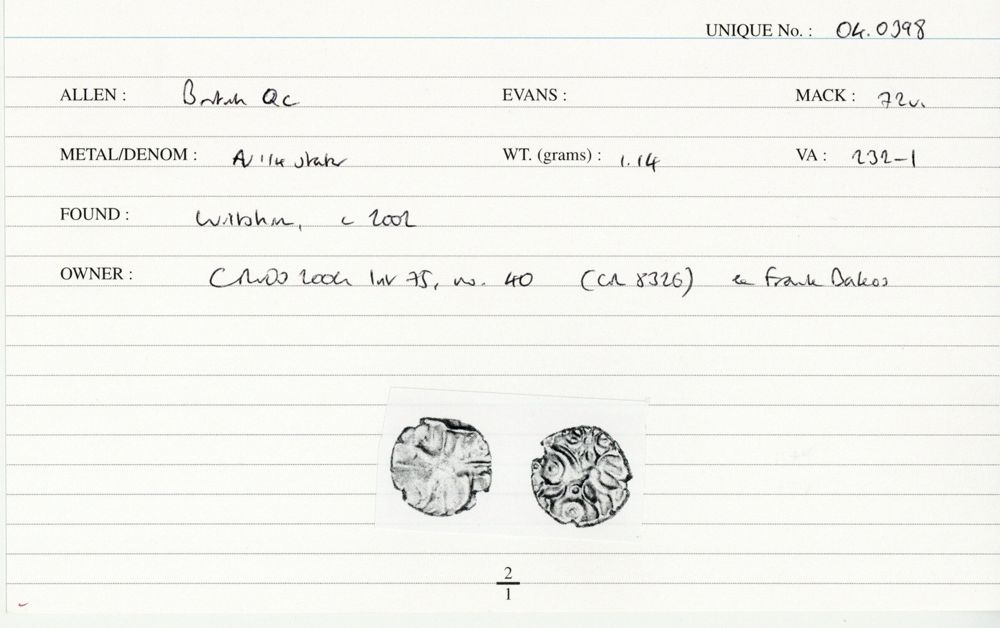 UNIQUE No. : 04.0398
ALLEN : British Qc EVANS : MACK : 72v.
METAL/DENOM : AV 1/4 stater WT. (grams) : 1.14 VA : 232-1
FOUND : Wiltshire, c 2002
OWNER : 2004 75, no. 40 (CR 8326) ex Frank
2
1